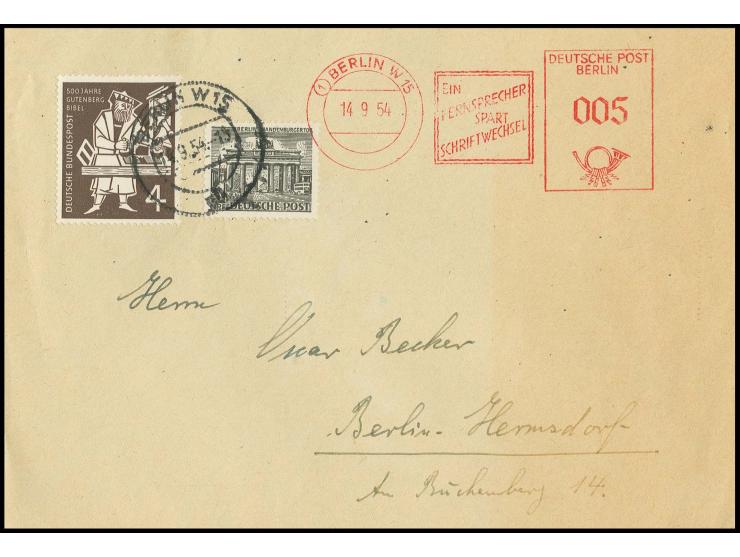 500 JAHRE
GUTENBERG
BIBEL
DEUTSCHE BUNDESPOST
4
BERLIN W 15
9.54
BERLIN
BRANDENBURGER TOR
DEUTSCHE POST
(1) BERLIN W 15
14 9 54
EIN
FERNSPRECHER
SPART
SCHRIFTWECHSEL
DEUTSCHE POST
BERLIN
005
Herrn
Oscar Becker
Berlin-Hermsdorf
Am Buchenberg 14.